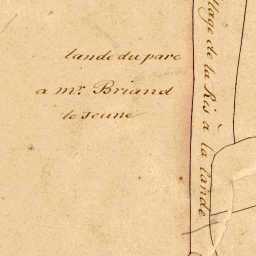 lande du parc
a mr. Briand
le Jeune
llage de la Ris à la lande